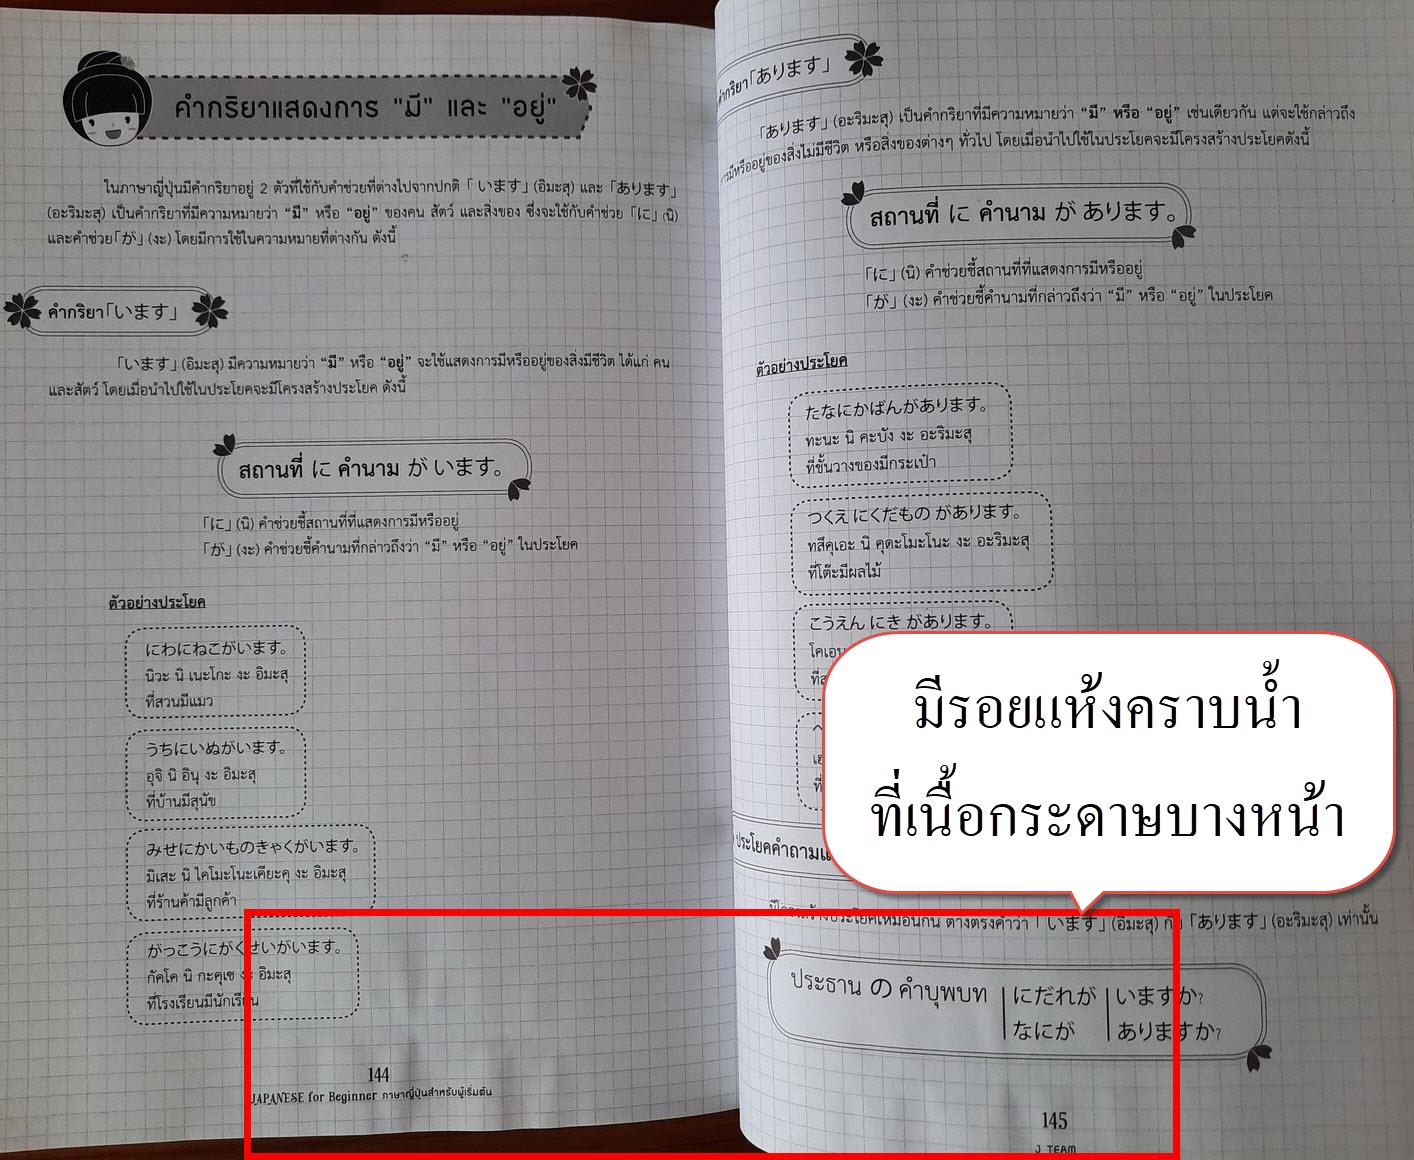 คำกริยาแสดงการ "มี" และ "อยู่"
ในภาษาญี่ปุ่นมีคำกริยาอยู่ 2 ตัวที่ใช้กับคำช่วยที่ต่างไปจากปกติ「います」(อิมะสุ) และ「あります」
(อะริมะสุ) เป็นคำกริยาที่มีความหมายว่า “มี” หรือ “อยู่” ของคน สัตว์ และสิ่งของ ซึ่งจะใช้กับคำช่วย「に」(นิ)
และคำช่วย「が」(งะ) โดยมีการใช้ในความหมายที่ต่างกัน ดังนี้
คำกริยา「います」
「います」(อิมะสุ) มีความหมายว่า “มี” หรือ “อยู่” จะใช้แสดงการมีหรืออยู่ของสิ่งมีชีวิต ได้แก่ คน
และสัตว์ โดยเมื่อนำไปใช้ในประโยคจะมีโครงสร้างประโยค ดังนี้
สถานที่ に คำนาม が います。
「に」(นิ) คำช่วยชี้สถานที่ที่แสดงการมีหรืออยู่
「が」(งะ) คำช่วยชี้คำนามที่กล่าวถึงว่า “มี” หรือ “อยู่” ในประโยค
ตัวอย่างประโยค
にわにねこがいます。
นิวะ นิ เนะโกะ งะ อิมะสุ
ที่สวนมีแมว
うちにいぬがいます。
อุจิ นิ อินุ งะ อิมะสุ
ที่บ้านมีสุนัข
みせにかいものきゃくがいます。
มิเสะ นิ ไคโมะโนะเคียะคุ งะ อิมะสุ
ที่ร้านค้ามีลูกค้า
がっこうにがくせいがいます。
กัคโค นิ กะคุเซ งะ อิมะสุ
ที่โรงเรียนมีนักเรียน
144
JAPANESE for Beginner ภาษาญี่ปุ่นสำหรับผู้เริ่มต้น
คำกริยา「あります」
「あります」(อะริมะสุ) เป็นคำกริยาที่มีความหมายว่า “มี” หรือ “อยู่” เช่นเดียวกัน แต่จะใช้กล่าวถึง
การมีหรืออยู่ของสิ่งไม่มีชีวิต หรือสิ่งของต่างๆ ทั่วไป โดยเมื่อนำไปใช้ในประโยคจะมีโครงสร้างประโยคดังนี้
สถานที่ に คำนาม が あります。
「に」(นิ) คำช่วยชี้สถานที่ที่แสดงการมีหรืออยู่
「が」(งะ) คำช่วยชี้คำนามที่กล่าวถึงว่า “มี” หรือ “อยู่” ในประโยค
ตัวอย่างประโยค
たなにかばんがあります。
ทะนะ นิ คะบัง งะ อะริมะสุ
ที่ชั้นวางของมีกระเป๋า
つくえ にくだもの があります。
ทสึคุเอะ นิ คุดะโมะโนะ งะ อะริมะสุ
ที่โต๊ะมีผลไม้
こうえん にき があります。
มีรอยแห้งคราบน้ำ
ที่เนื้อกระดาษบางหน้า
ประโยคคำถาม
มีโครงสร้างประโยคเหมือนกัน ต่างตรงคำว่า「います」(อิมะสุ) กับ「あります」(อะริมะสุ) เท่านั้น
ประธาน の คำบุพบท | にだれが | いますか?
なにが | ありますか?
145
J TEAM